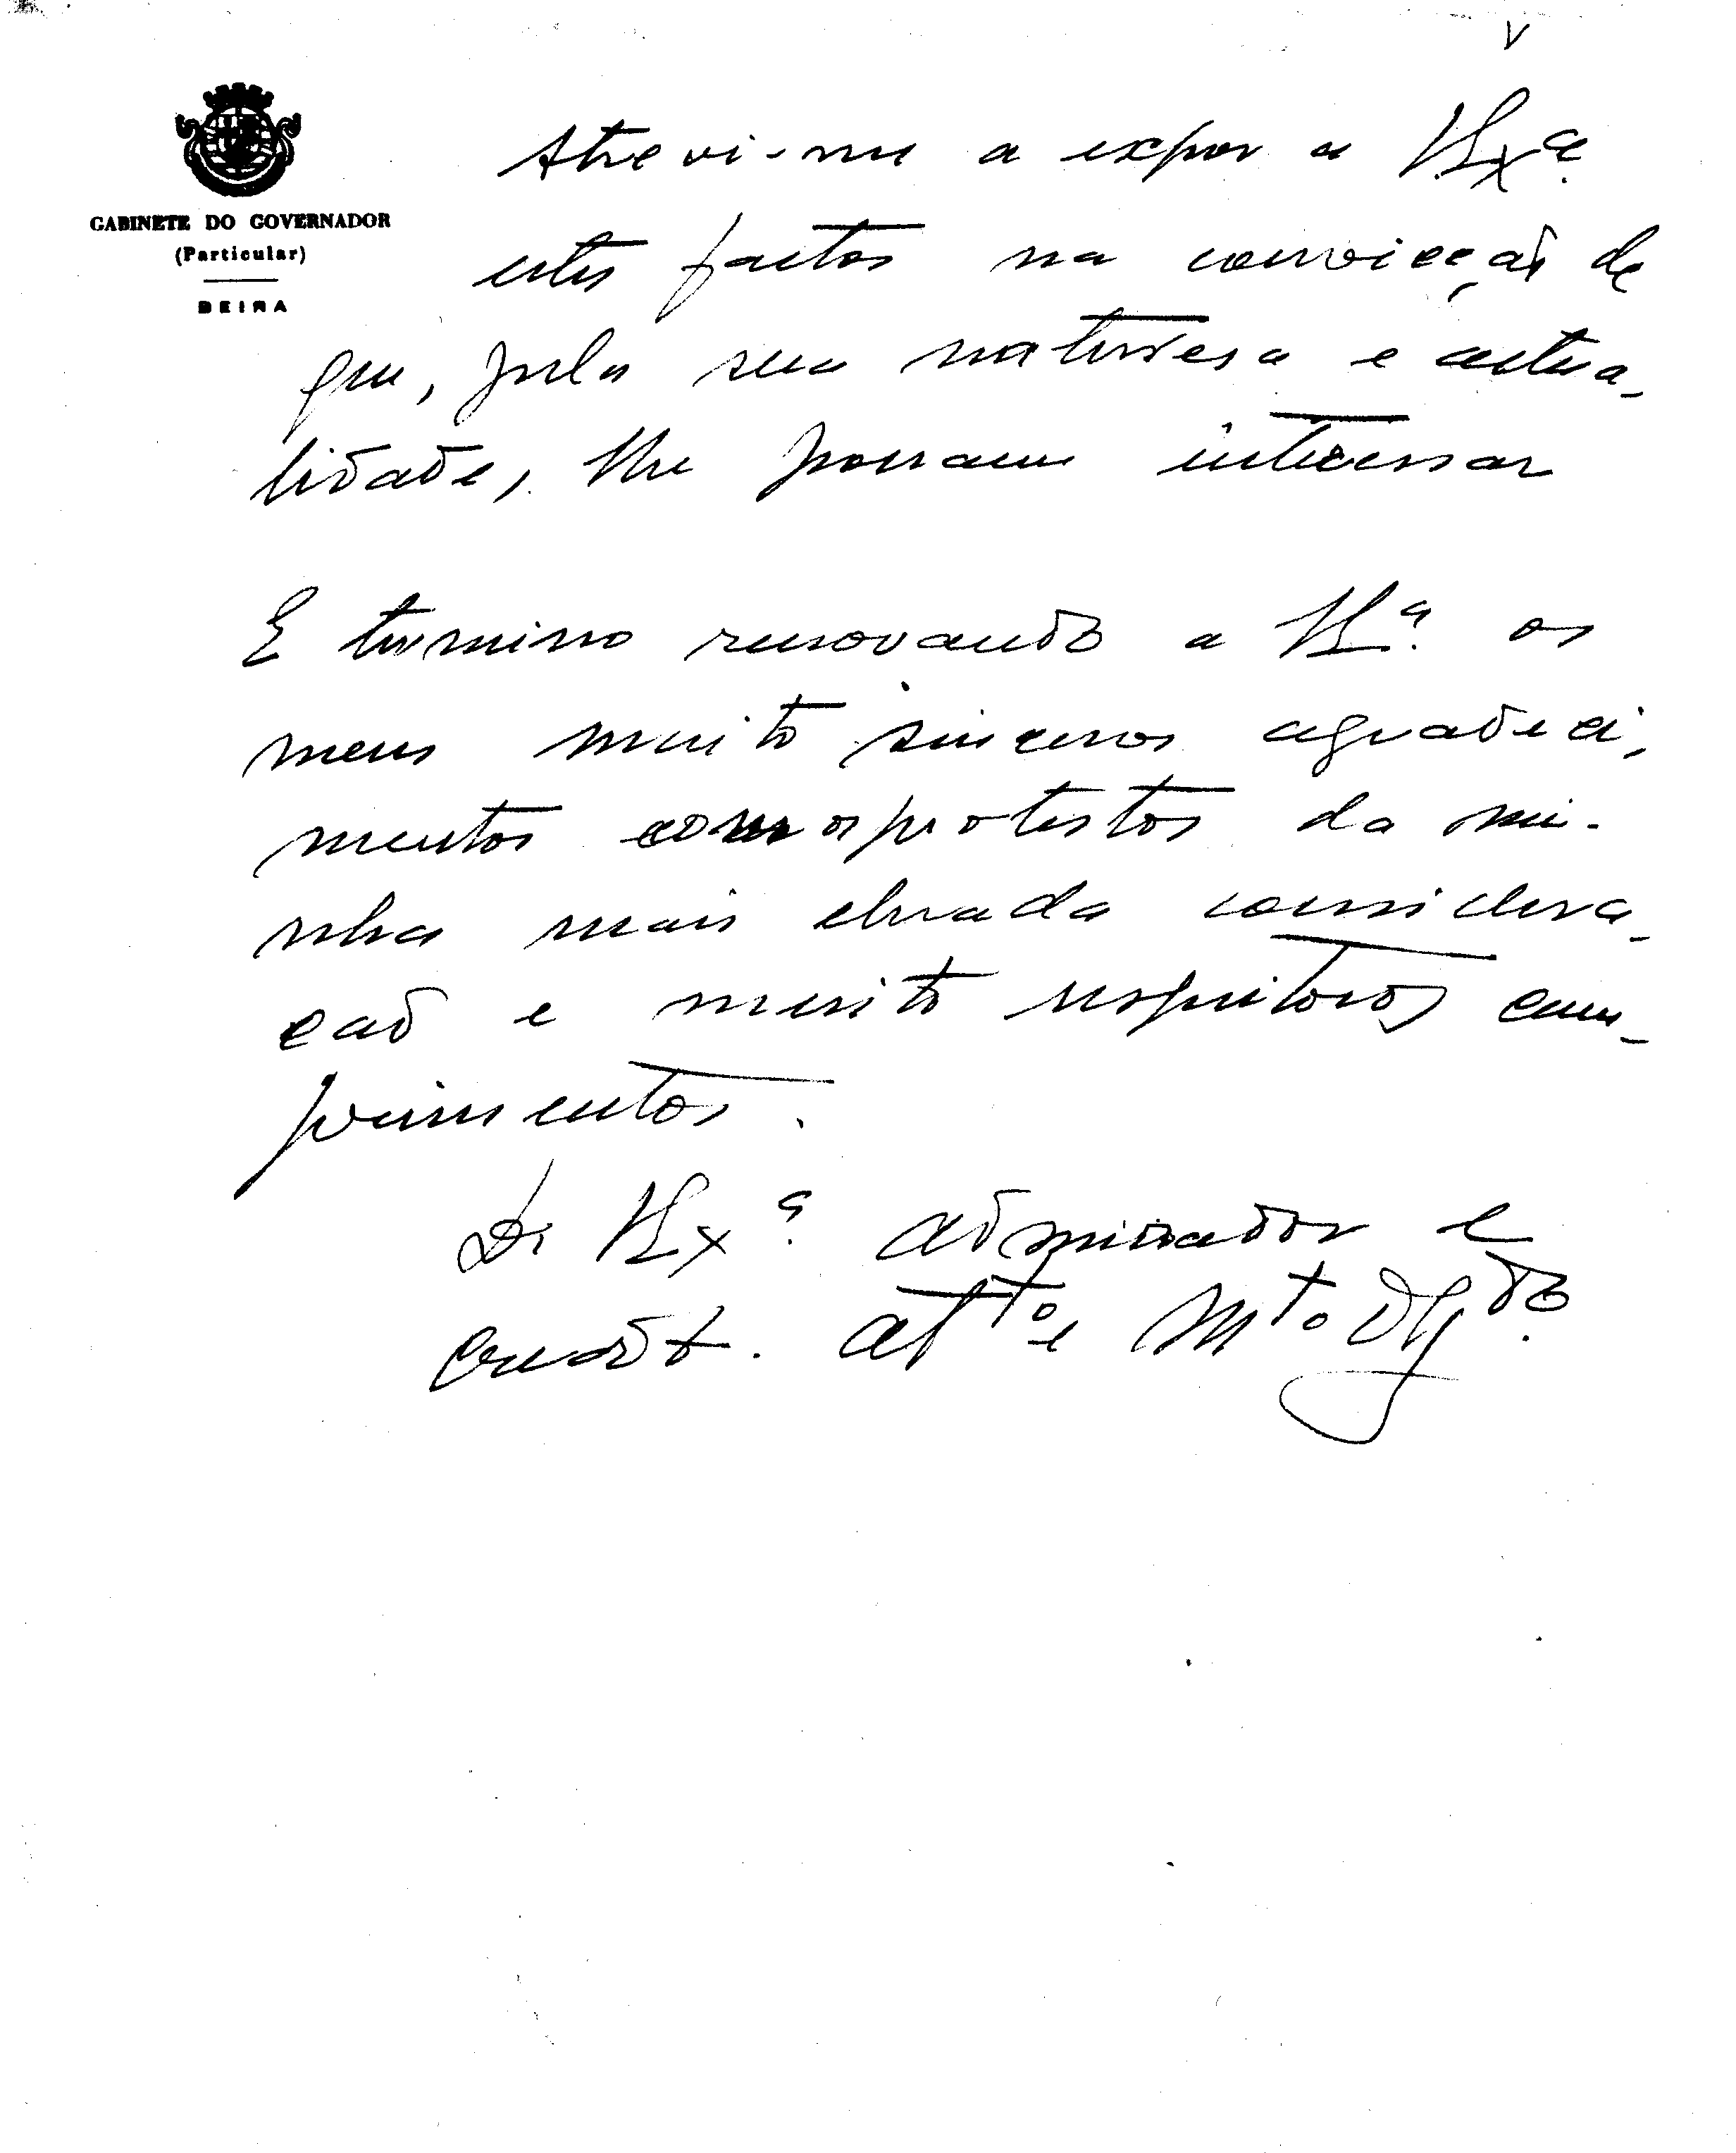 V
GABINETE DO GOVERNADOR
(Particular)
BEIRA
Atrevi-me a expor a V.Exª.
estes factos na convicção de
que, pela sua naturesa e actua-
lidade, lhe possam interessar
E termino renovando a V.Eª. os
meus muito sinceros agradeci-
mentos com os protestos da mi-
nha mais elevada considera-
ção e muito respeitosos cum-
primentos.
De V.Exª. admirador e
attº e Mtº Obgdo.